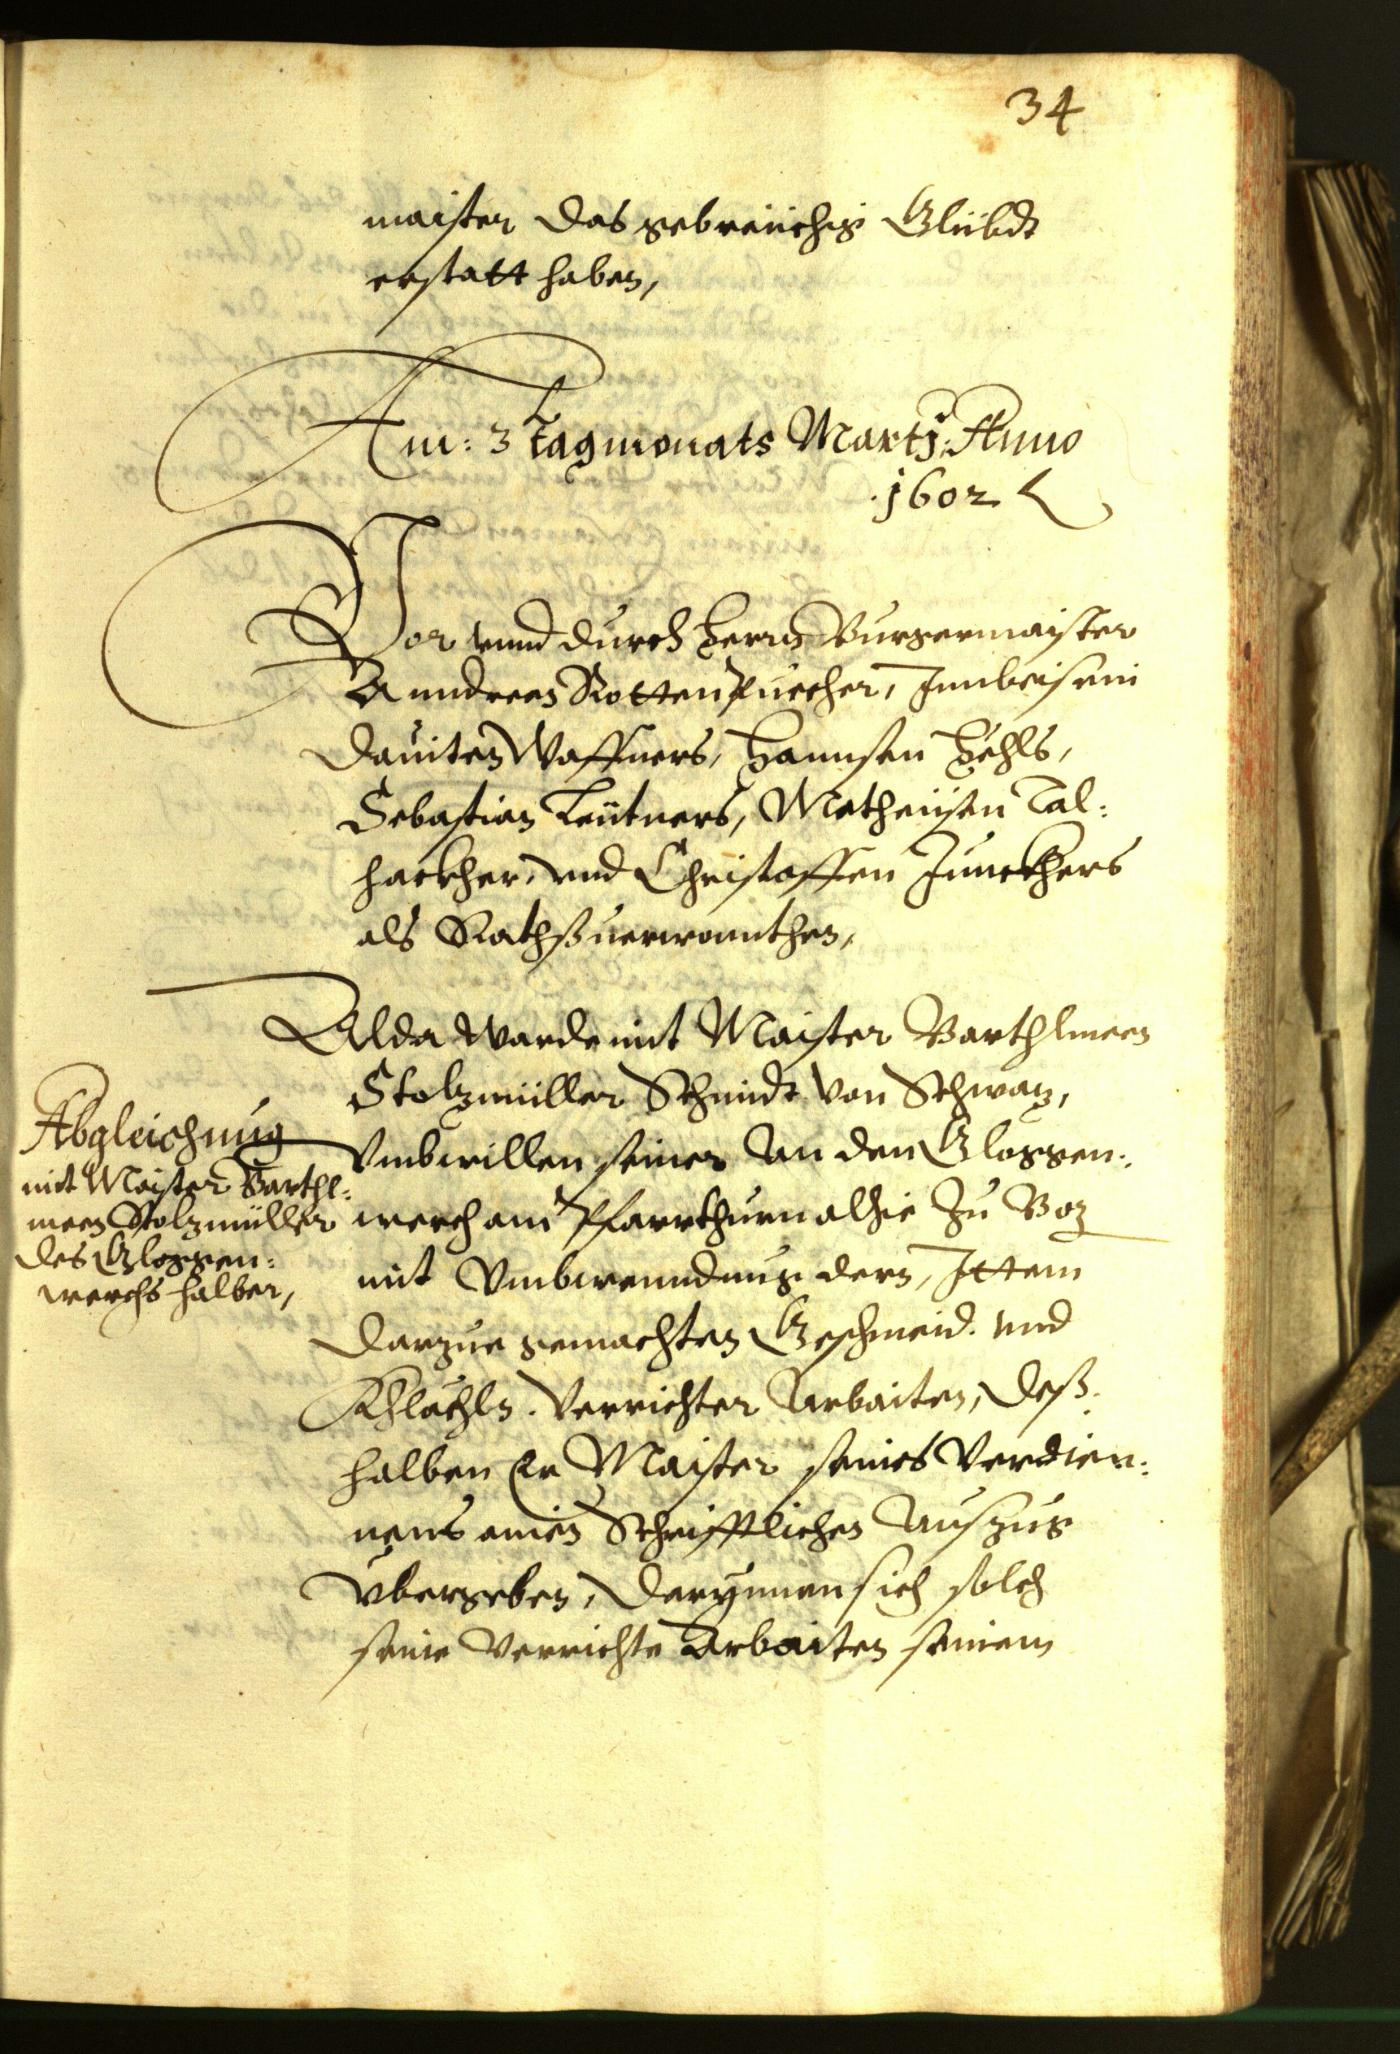 34
maister das gebreüchig Glübdt
erstatt haben,
Am: 3 tag monats Martj: Anno
.1602
Vor vnnd durch herrn Burgermaister
Anndreen Rottenpuecher, Jnnbeisein
Dauiten Waffners, Hannsen Hehls,
Sebastian Leütners, Matheüsen Tal:
hackher, vnd Christoffen Junckhers
als Rathßuerwonnthen,
Alda warde mit Maister Barthlmeen
Stolzmüller Schmidt von Schwaz,
Vmbwillen seiner An den Gloggen:
werch am Pfarrthurn alhie Zu Boz
mit Vmbwenndung dern, Jttem
darzue gemachten Geschmeid. vnd
Khlächln. Verrichter Arbaiten, deß:
halben Er Maister seines Verdien:
nens ainen Schrifftlichen Auszug
Vbergeben, darynnen sich solch
seine verrichte Arbaiten seinem
Abgleichung
mit Maister Barthl:
meen Stolzmüller
des Gloggen:
werchs halber,